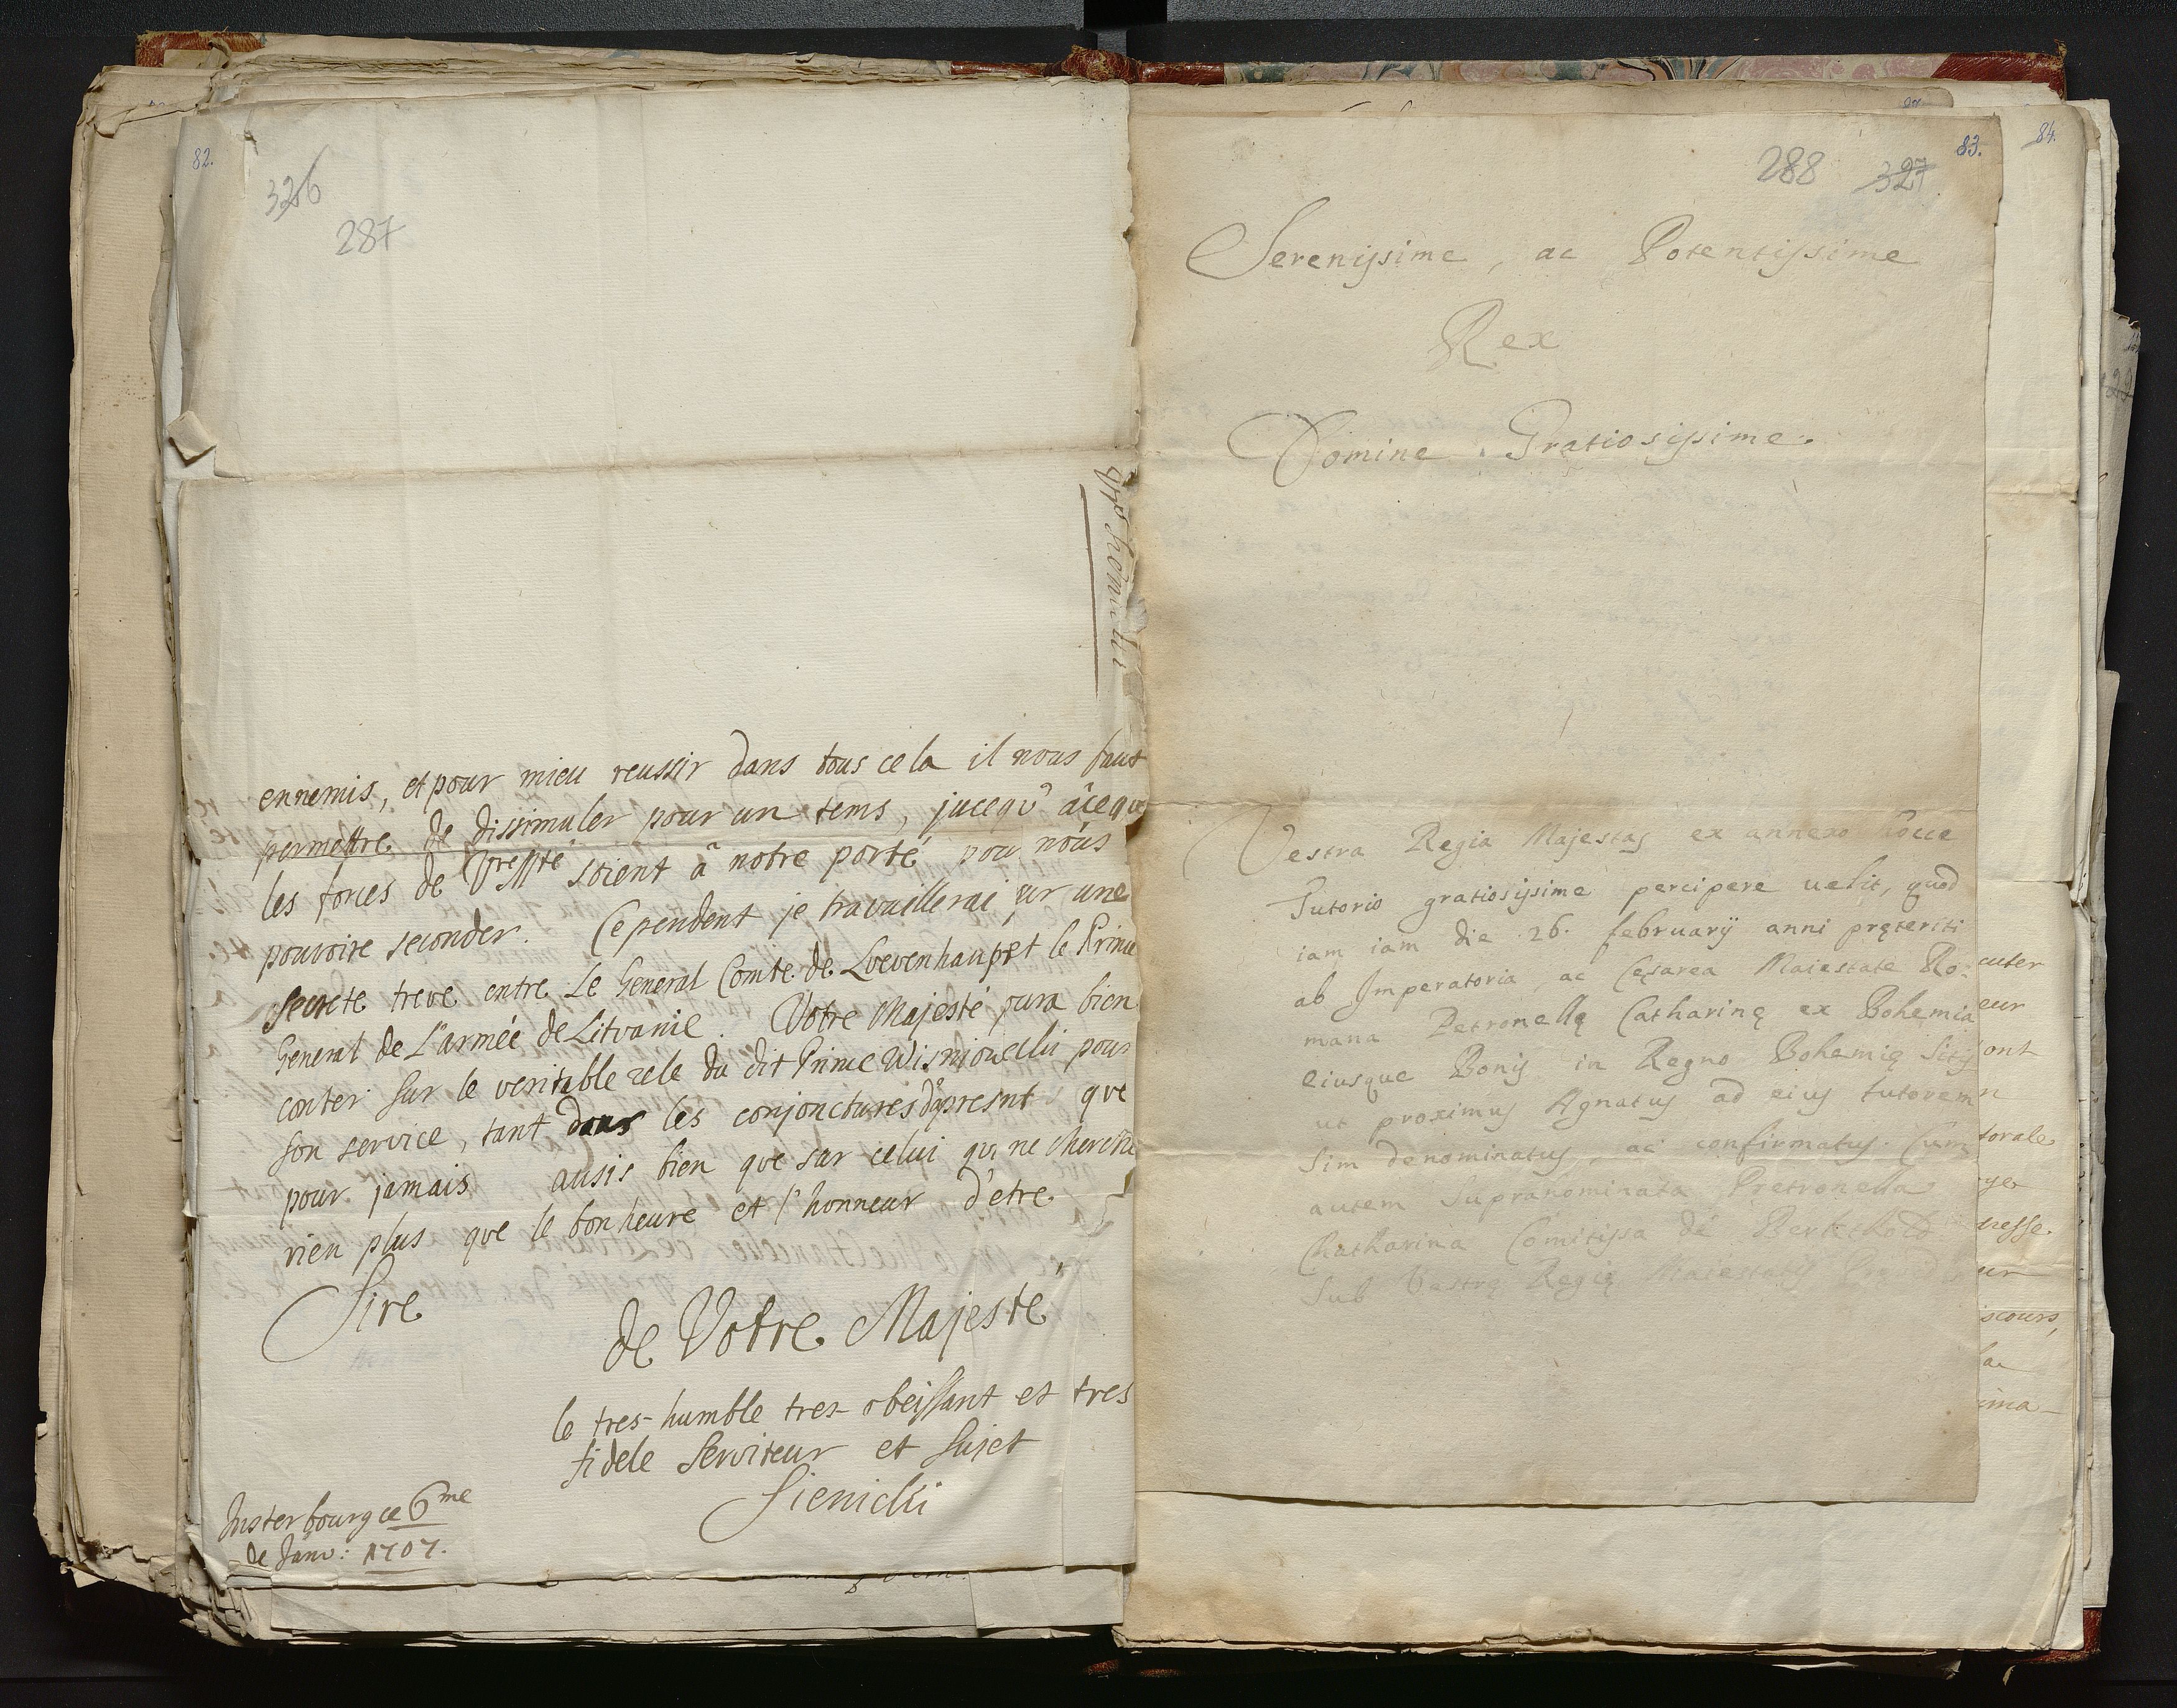 82.
326
287
ennemis, et pour mieu reussir dans tous cela il nous faut
permettre de dissimuler pour un tems, jucequ' âceque
les forces de Vre Mté soient â notre porté pou nous
pouvoire seconder. Cependent je travaillerai sur une
secrete treve entre Le General Comte de Loevenhaupt et le Prince
General de L'armée de Litvanie. Votre Majesté poura bien
conter sur le veritable zele du dit Prince Wisniouelki pour
son service, tant dans les conjonctures d'apresnt que
pour jamais ausis bien que sur celui qui ne cherche
rien plus que le bonheure et l'honneur d'etre
Sire
de Votre Majesté
le tres-humble tres-obeissant et tres
fidele Serviteur et Sujet
Sienicki
Insterbourg ce 6me
de Janv: 1707.
83.
84.
288 327
Serenissime, ac Potentissime
Rex
Domine Gratiosissime.
Vestra Regia Majestas ex annexo hocce
Tutorio gratiosissime percipere uelit, quod
iam iam die 26. februarÿ anni pręteriti
ab Imperatoria, ac Cęsarea Maiestate Ro:
mana Petronellę Catharinę ex Bohemia
eiusque Bonis in Regno Bohemię sitis
ut proximus Agnatus ad eius tutorem
sim denominatus, ac confirmatus. Cum
autem supranominata Pretronella
Chatharina Comitissa de Berktholdt
sub Vestrę Regię Maiestatis
cuter
eur
ont
n
torale
ge
resse.
ur
iscours,
la
ima-